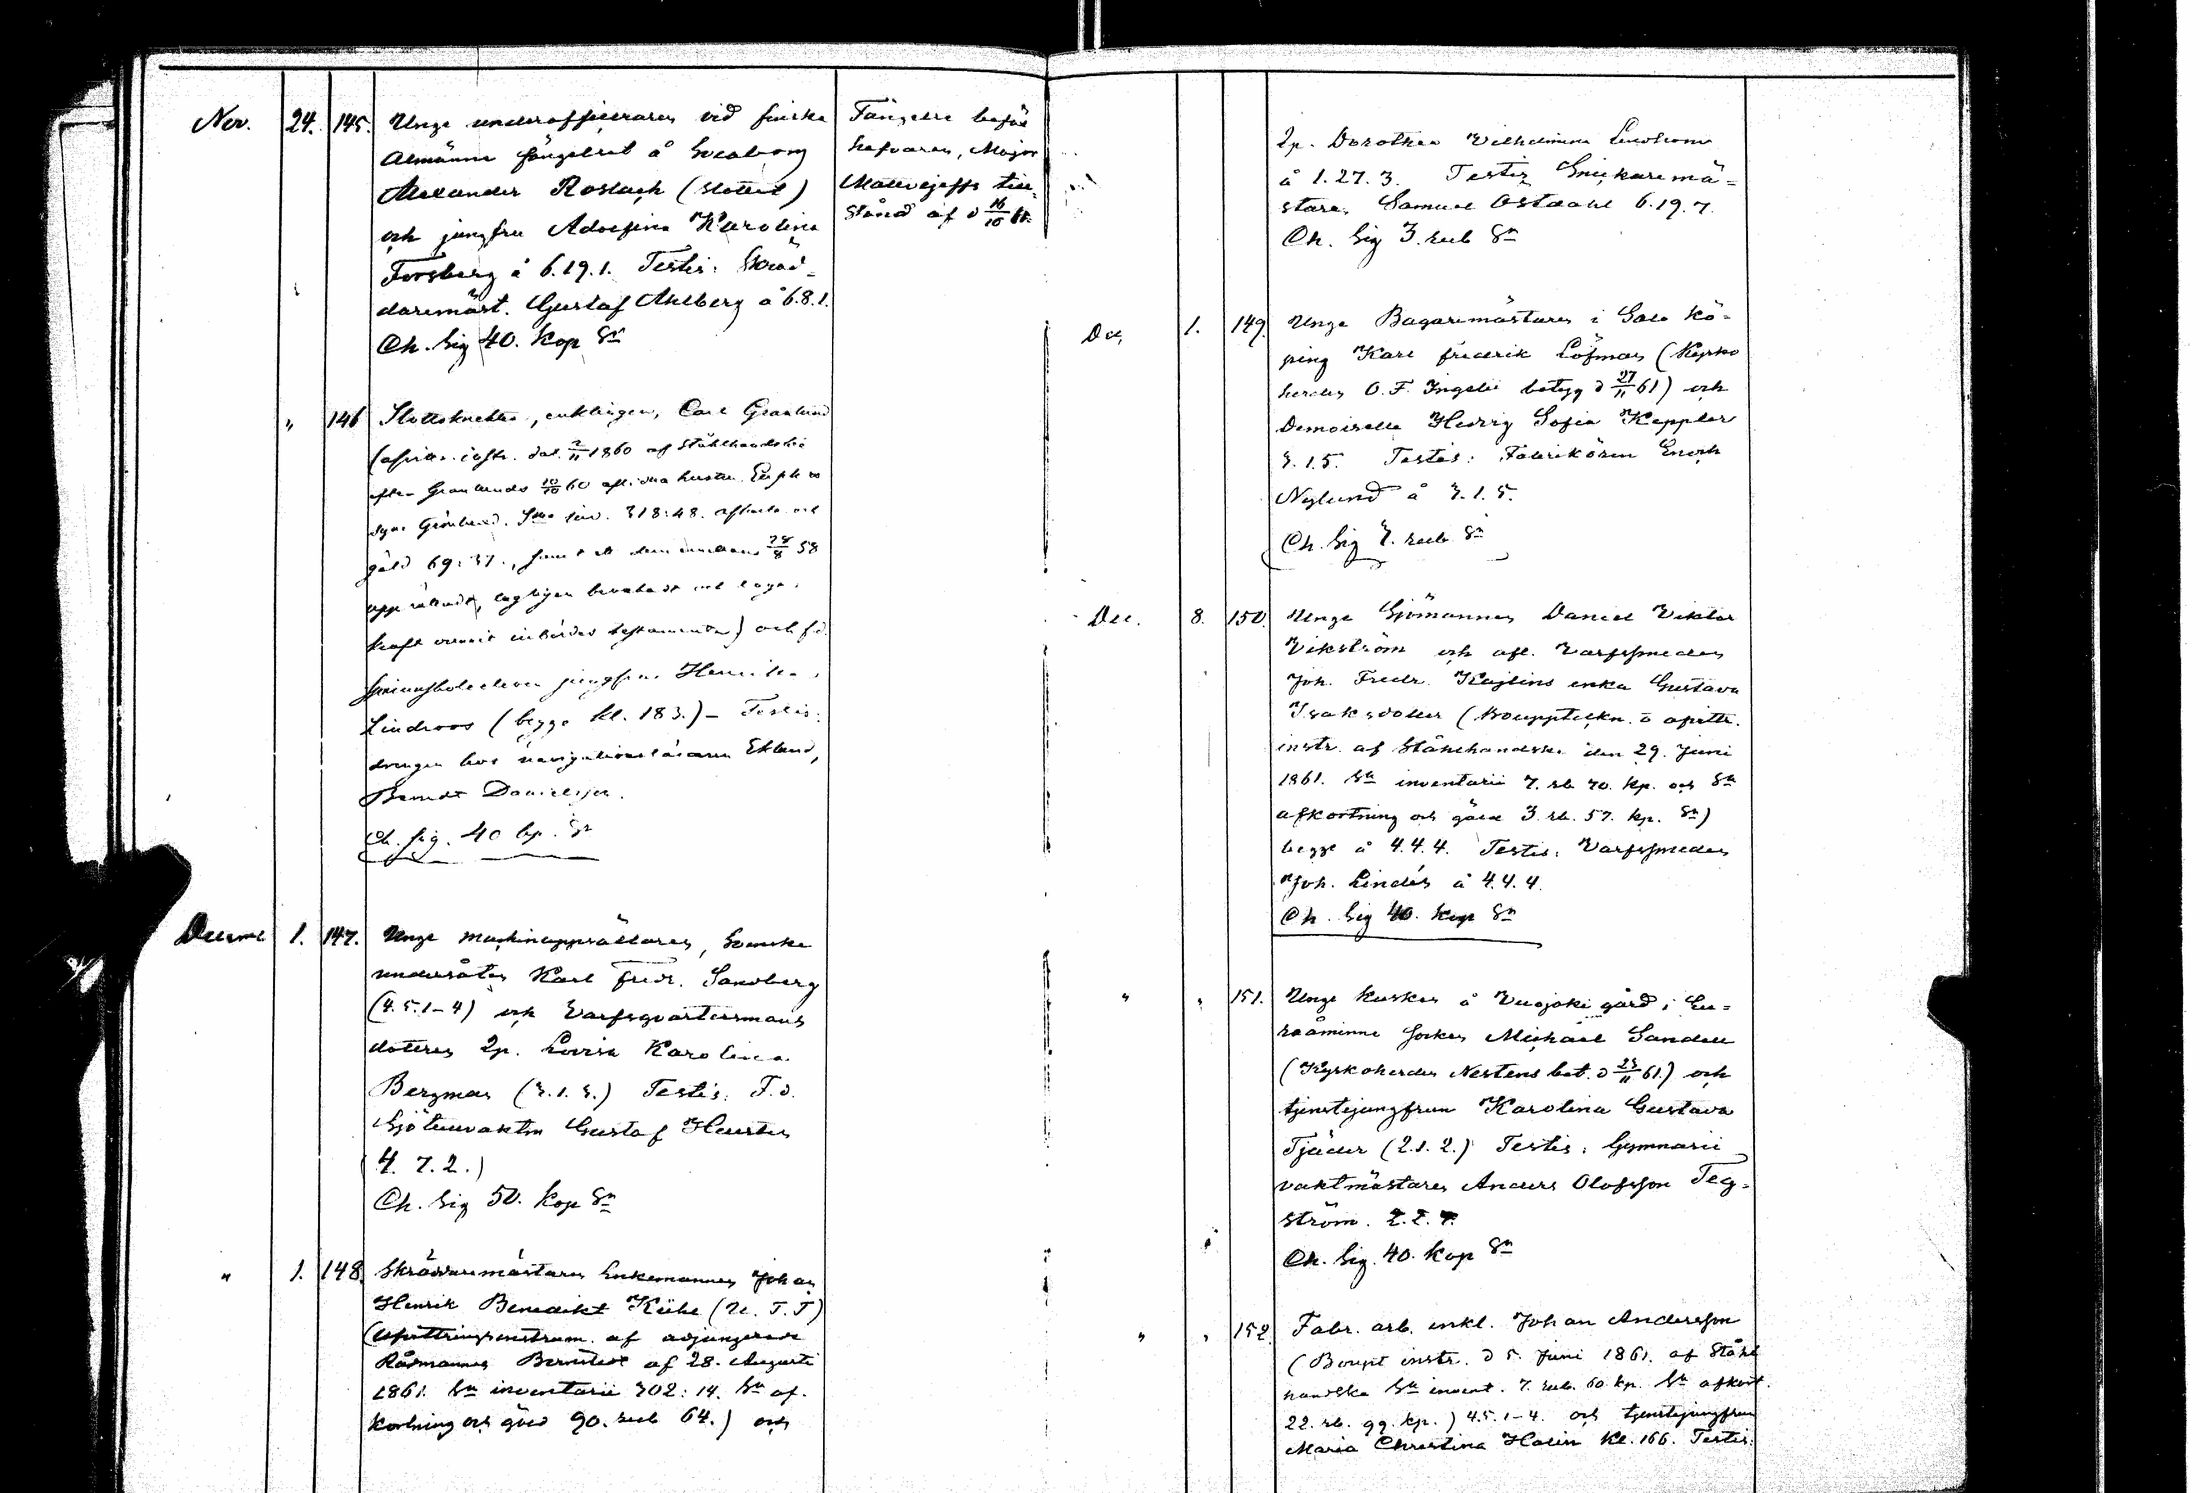 Nov. 24. 145. Unge underofficeraren vid finska
Almänna fängelset å Sveaborg
Alexander Roslach (slottet)
och jungfru Adolfina Karolina
Forsberg å 6.19.1. Testis: Skräd-
daremäst. Gustaf Ahlberg å 6.8.1.
Ch. Sig 40. kop Sr
Fängelse befäl
hafvaren, Major
Matvejeffs till-
stånd af d 16/10 61.
" 146 Slottsknekten, enklingen, Carl Granlund
(afvittr. instr. dat. 2/11 1860 af Stålhandske
efter Granlunds 10/10 60 aflidna hustru
Granlund. Sma inv. 318:48. afkorta. och
gäld 69:37., samt ett dem emellan 28/8 58
upprättadt, lagligen bevakadt och laga
kraft vunnit inbördes testamente) och f.d.
jungfrun Henrika
Lindroos (begge kl. 183.) – Testis:
drengen hos navigationsläraren Eklund,
Berndt Danielsson.
Ch. sig. 40 kp. Sr
Decemb 1. 147. Unge maskinuppsättaren, Svenska
undersåten Karl Fredr. Sandberg
(4.5.1–4) och Varfsqvartersmans
dottren 2p. Lovisa Karolina
Bergman (3.1.3.) Testis: F.d.
Sjötullvaktm Gustaf
(4. 7. 2.)
Ch. Sig 50. kop Sr
" 1. 148. Skräddaremästaren Enkemannen Johan
Henrik Benedikt Kühl (U. T. T)
(Afvittringsinstrum. af adjungerade
Rådmannen af 28. Augusti
1861. Sa inventarii 302:14. Sa af-
kortning och gäld 90. rub 64.) och
2p. Dorothea Vilhelmina Lindbom
å 1.27.3. Testis Snickaremä-
staren Samuel Östdahl 6.19.7.
Ch. Sig 3. rub Sr
Dec. 1. 149. Unge Bagaremästaren i Salo kö-
ping Karl Fredrik Löfman (Kyrko
herden O. F. Ingelii betyg d 27/11 61) och
Demoiselle Hedvig Sofia Keppler
3.1.5. Testis: Fabrikören Enoch
Nylund å 3.1.5.
Ch. Sig 3. rub Sr
Dec. 8. 150. Unge Sjömannen Daniel Viktor
Vikström och afl. Varfssmeden
Joh. Fredr. Kajlins enka Gustava
Isaksdotter (Bouppteckn. o afvittr.
instr. af Stålhandske den 29. Juni
1861. Sa inventarii 7. rb. 70. kp. och Sa
afkortning och gäld 3. rb. 57. kp. Sr)
begge å 4.4.4. Testis: Varfssmeden
Joh. Lindén å 4.4.4.
Ch. Sig 40. kop Sr
" " 151. Unge kusken å Vuojoki gård i Eu-
raåminne socken Michael Sandell
(Kyrkoherden Nestens bet. d 23/11 61.) och
tjenstejungfrun Karolina Gustava
Tjäder (2.1.2.) Testis: Gymnasii
vaktmästaren Anders Olofsson Teg-
ström. 2.2.4.
Ch. Sig. 40. kop Sr
" " 152 Fabr. arb. enkl. Johan Andersson
(Boupt instr. d 5. Juni 1861. af Stål
handske Sa invent. 7. rub. 60. kp. Sa afkort.
22. rb. 99. kp.) 4.5.1–4. och tjenstejungfrun
Maria Christina Halin Kl. 166. Testis: